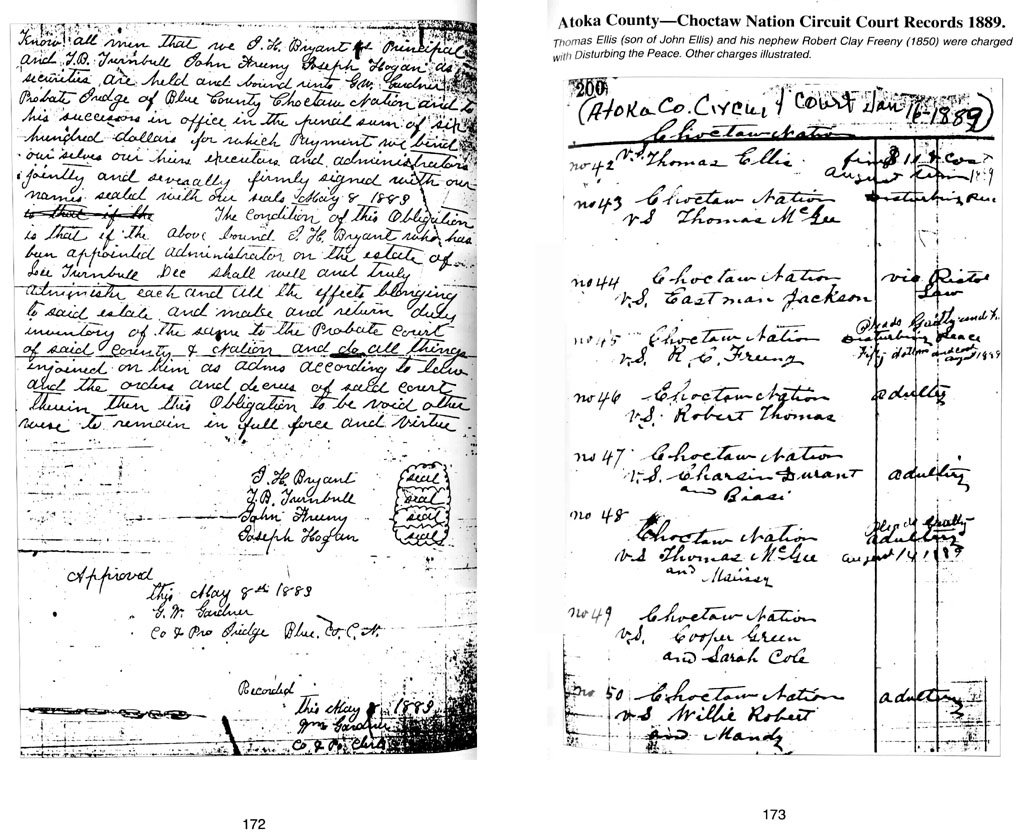 Know all men that we J. H. Bryant as Principal
and T.B. Turnbull John Freeny Joseph Hogan as
securities are held and bound unto G.W. Gardner
Probate Judge of Blue County Choctaw Nation and to
his successors in office in the penal sum of six
hundred dollars for which Payment we bind
our selves our heirs executors and administrators
jointly and severally firmly signed with our
names sealed with our seals May 8 1883
to that if the The Condition of this Obligation
is that if the above bound J. H. Bryant who has
been appointed administrator on the estate of
Lee Turnbull Dec shall well and truly
administer each and all the effects blonging
to said estate and make and return duly
inventory of the same to the Probate Court
of said County & Nation and do all things
injoined on him as adms according to law
and the orders and decrees of said court
therein then this Obligation to be void other
wise to remain in full force and virtue
J. H. Bryant seal
T.B. Turnbull seal
John Freeny seal
Joseph Hogan seal
Approved
this May 8th 1883
G. W. Gardner
Co & Pro Judge Blue. Co. C. N.
Recorded
this May 8 1883
Gardner
Co & Pr. Clerk
172
Atoka County—Choctaw Nation Circuit Court Records 1889.
Thomas Ellis (son of John Ellis) and his nephew Robert Clay Freeny (1850) were charged
with Disturbing the Peace. Other charges illustrated.
200
(Atoka Co. Circuit Court Jan 16-1889)
Choctaw Nation
no 42 v.s. Thomas Ellis fine & cost
August term
no 43 Choctaw Nation Disturbing
v.s Thomas McGee
no 44 Choctaw Nation vio Pistol
v.s. Eastman Jackson Law
no 45 Choctaw Nation Pleads Guilty and
v.s. R. C. Freeny Disturbing Peace
Fifty dollars and cost August 1889
no 46 Choctaw Nation adultry
v.s. Robert Thomas
no 47 Choctaw Nation
v.s. Charsin Durant adultry
and Biasi
no 48 Pleads Guilty
Choctaw Nation adultry
v.s Thomas McGee august 14 1889
and
no 49 Choctaw Nation
v.s. Cooper Green
and Sarah Cole
no 50 Choctaw Nation adultry
v.s Willie Robert
and Mandy
173